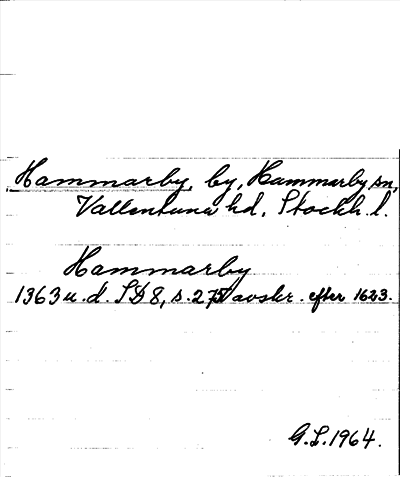 Hammarby, by, Hammarby sn,
Vallentuna hd, Stockh. l.
Hammarby
1363 u. d. SD 8, s. 275 avskr. efter 1623.
G.L. 1964.